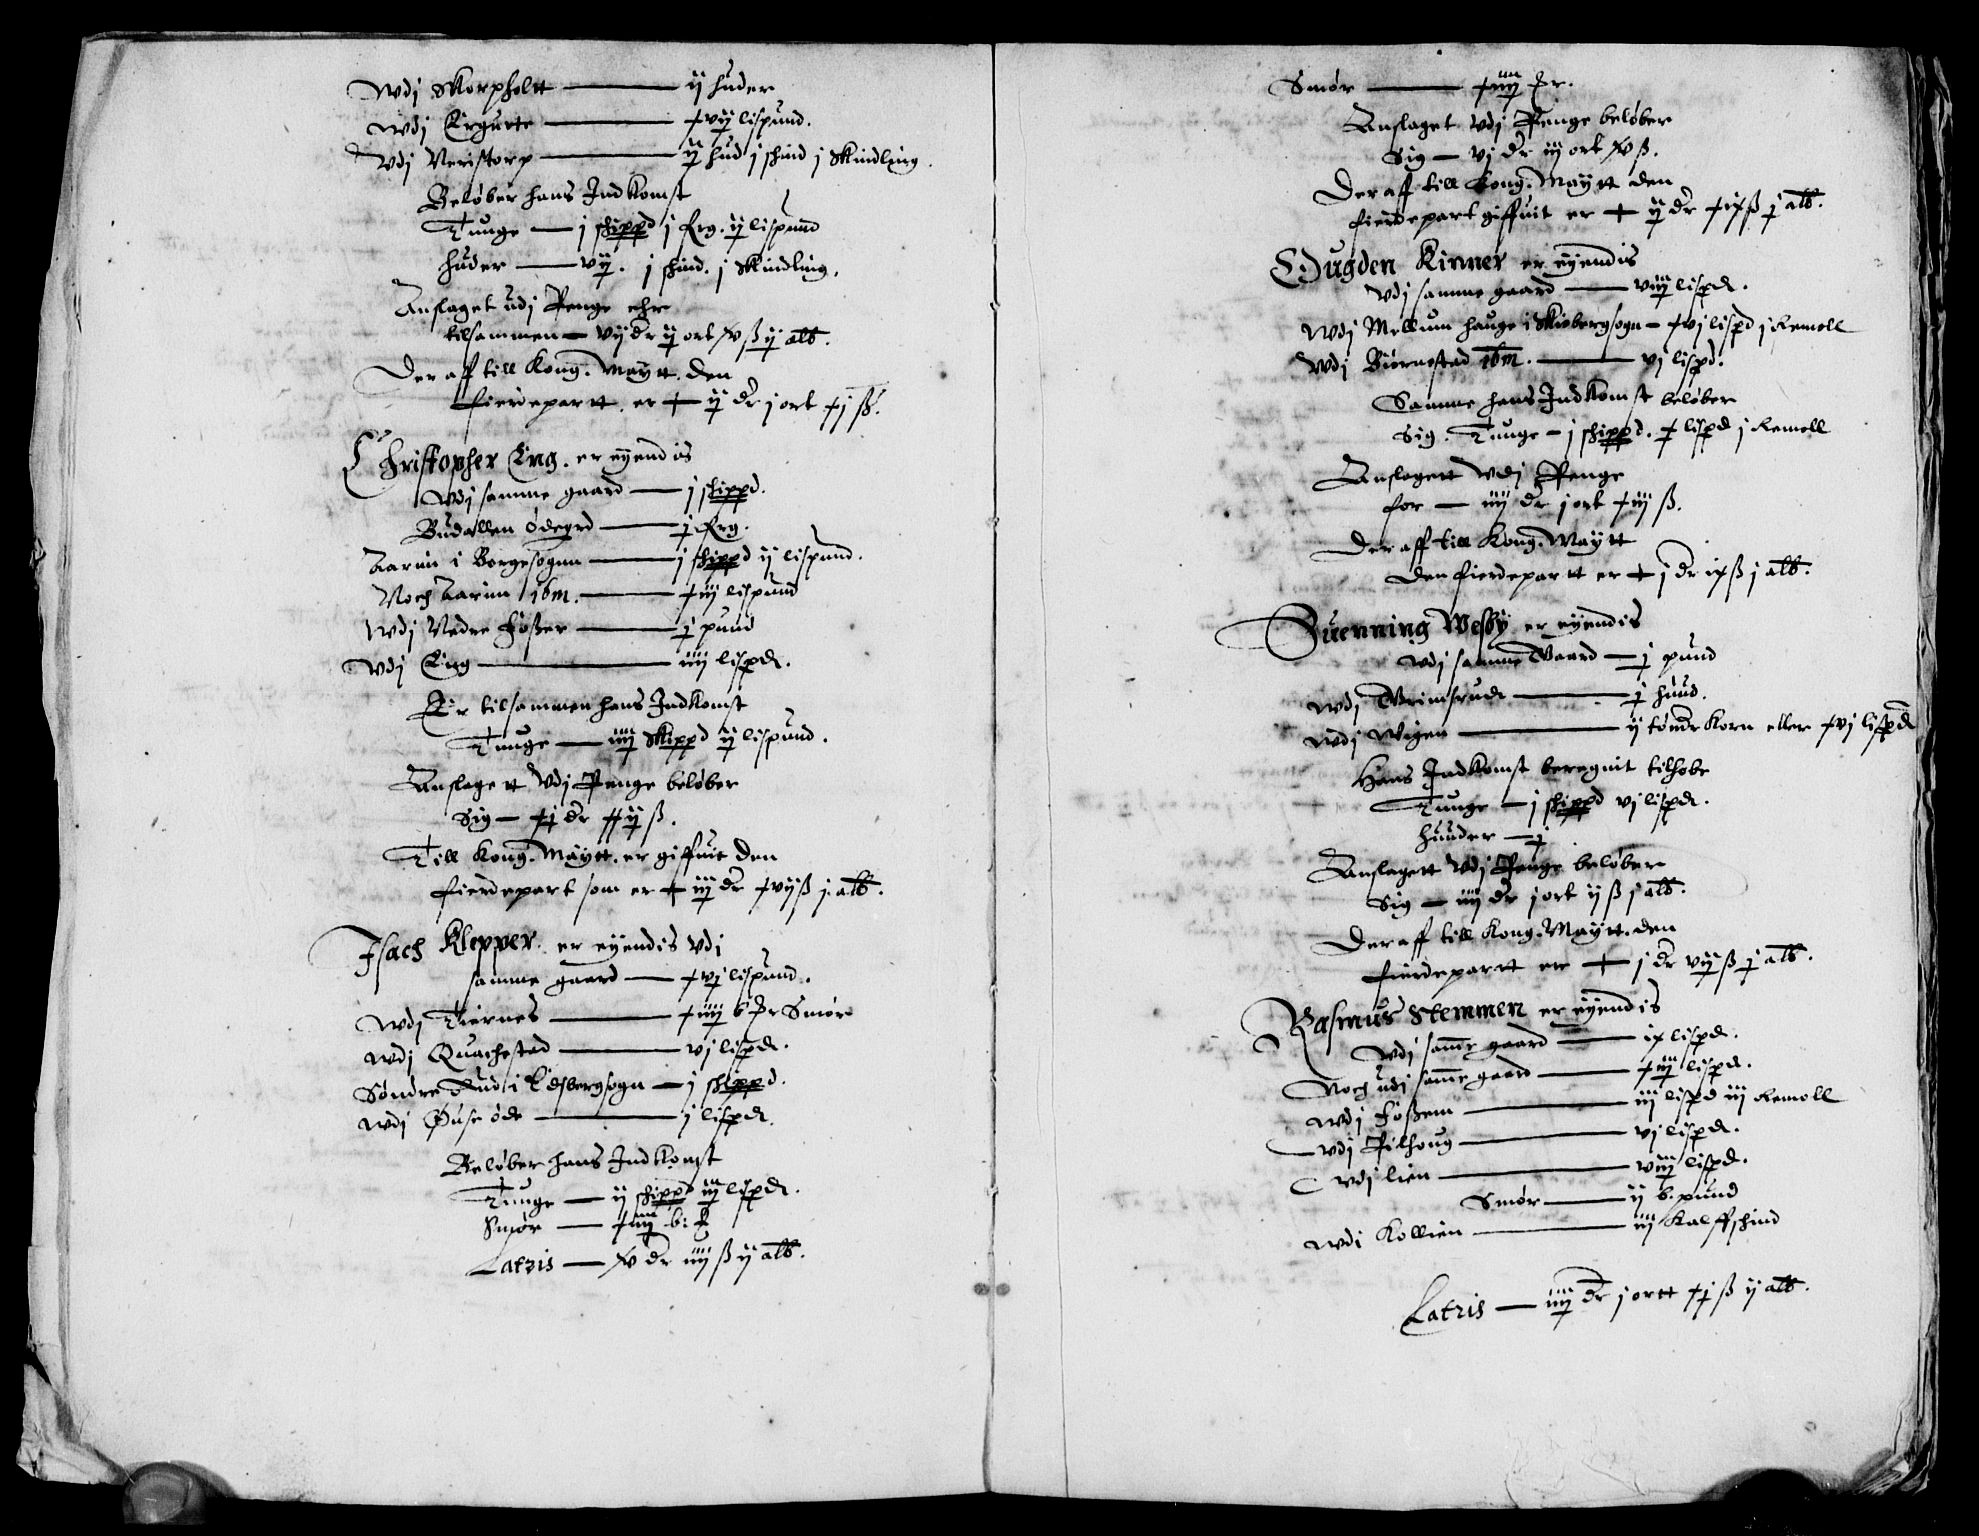 Wdj Skorpholtt — ij huder
Wdj Ergurtte — xvij lispund.
Wdj Neristorp — ij hud j skind j Skindling.
Beløber hans Jndkomst
Tunge — j skippd j frg. ij lispund
huder — vij. j skind. j Skindling.
Anslaget udj Penge ehr
tilsammen — vij dr ij ort xv ß ij alb.
Der aff till Kong. Maytt. den
fierdepartt. er + ij dr j ort xj ß.
Christopher Eng. er eyendis
Wdj samme gaard — j skippd.
Budallen ødegrd — j frg.
Karinn i Borgesogun — j skippd ij lispund.
Noch Karinn ibm. — xiij lispund
Wdj Nedre Foßer — j pund
Wdj Eng — iiij lispd.
Er tilsammen hans Jndkomst
Tunge — iiij Skippd ij lispund.
Anslagett Vdj Penge beløber
Sig — xj dr xxij ß.
Till Kong. Maytt. er giffuit den
fierdepart som er + iij dr xvij ß j. alb.
Jsach Klepper. er eyendis Vdj
samme gaard — xvj lispund.
Wdj Tiernes — xiiij b pr Smør
Wdj Quachestad — vj lispd.
Søndre Rud i Edsbergsogn — j skippd.
Wdj Huse øde — j lispd.
Beløber hans Jndkomst
Tunge — ij skippd iij lispd.
Smør — xiiij b:
Latris — xv dr iiij ß ij alb.
Smør — xiiij pr.
Anslaget Vdj Penge beløber
Sig — vj dr iij ort xv ß.
Der aff till Kong. Maytt den
fierdepart giffuit er + ij dr xix ß j alb.
Gugden Kinner er eyendis
Vdj samme gaard — viij lispd.
Wdj Mellum hauge i Skibergsogn — xvj lispd j Remoll
Wdj Biørnestad ibm. — vj lispd.
Samme hans Jndkomst beløber
Sig. Tunge — j skippd. x lispd j Remoll
Anslagett Wdj Penge
for — iiij dr j ort xiij ß.
Der aff till Kong. Maytt
den fierdepartt er + j dr ix ß j alb.
Suenning Wesby er eyendis
Wdj samme Gaard — j pund
Wdj Grimsrudt — j huud.
Wdj Wigen — ij tønder Korn eller xvj lispd
Hans Jndkomst beregnit tilhobe
Tunge — j skippd vj lispd.
huuder — j
Anslagett Vdj Penge beløber
Sig — iiij dr j ort ij ß j alb.
Der aff till Kong. Maytt. den
fierdepartt er + j dr vij ß j alb.
Rasmus Stemmen er eyendis
Wdj samme gaard — ix lispd.
Noch udj samme gaard — xiij lispd.
Wdj Foßem — iij lispd iij Remoll
Wdj Pilhoug — vj lispd.
Wdj lien — viij lispd.
Smør — ij b. pund
Wdj Kollien — iij Kalffskind
Latris — iiij dr j ortt xj ß ij alb.